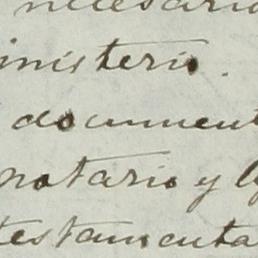 necesario
inisterio.
document
notario y
testamenta